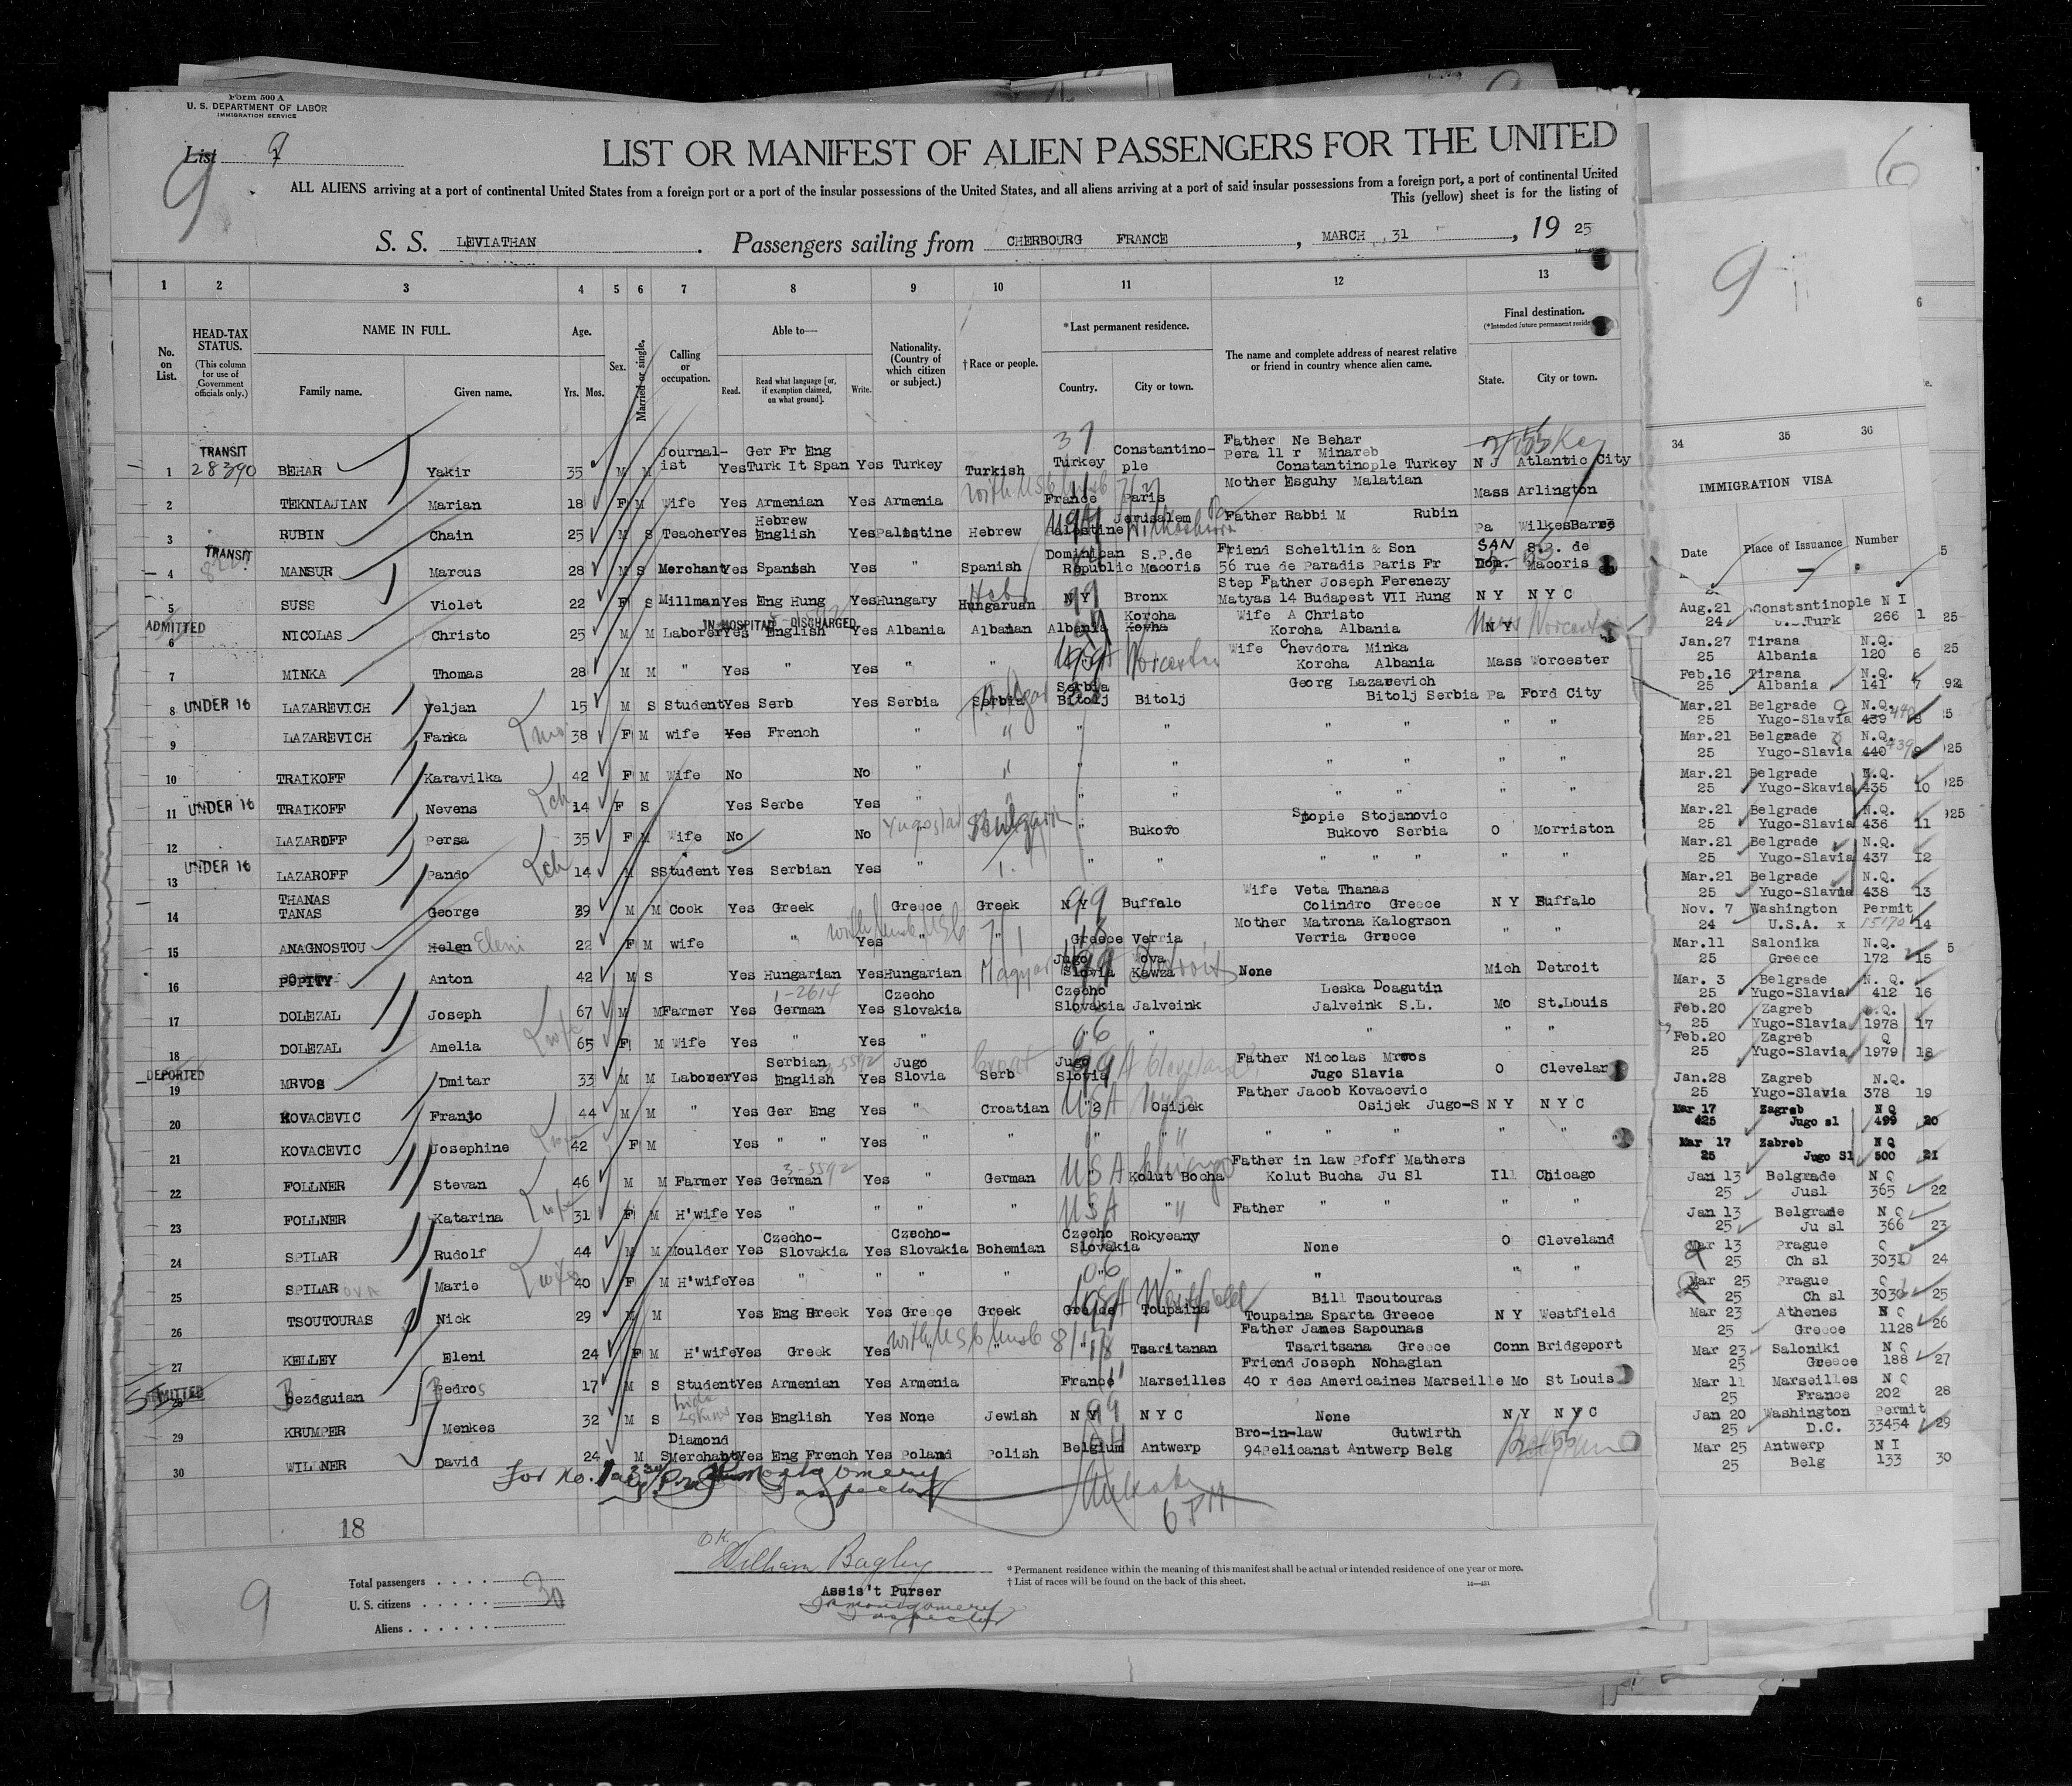 Form 500 A
U. S. DEPARTMENT OF LABOR
IMMIGRATION SERVICE
List 9
9
LIST OR MANIFEST OF ALIEN PASSENGERS FOR THE UNITED
ALL ALIENS arriving at a port of continental United States from a foreign port or a port of the insular possessions of the United States, and all aliens arriving at a port of said insular possessions from a foreign port, a port of continental United
This (yellow) sheet is for the listing of
S. S. LEVIATHAN . Passengers sailing from CHERBOURG FRANCE , MARCH 31 , 19 25
1 2 3 4 5 6 7 8 9 10 11 12 13
No. on List.
HEAD-TAX STATUS.
(This column for use of Government officials only.)
NAME IN FULL.
Family name. Given name.
Age.
Yrs. Mos.
Sex.
Married or single.
Calling or occupation.
Able to—
Read. Read what language [or, if exemption claimed, on what ground]. Write.
Nationality. (Country of which citizen or subject.)
† Race or people.
* Last permanent residence.
Country. City or town.
The name and complete address of nearest relative or friend in country whence alien came.
Final destination.
(*Intended future permanent reside
State. City or town.
1 TRANSIT 28390 BEHAR Yakir 35 M M Journalist Yes Ger Fr Eng Turk It Span Yes Turkey Turkish Turkey Constantinople Father Ne Behar Pera 11 r Minareb Constantinople Turkey N J Atlantic City
2 TEKNIAJIAN Marian 18 F M Wife Yes Armenian Yes Armenia France Paris Mother Esguhy Malatian Mass Arlington
3 RUBIN Chain 25 M S Teacher Yes Hebrew English Yes Palestine Hebrew Palestine Jerusalem Father Rabbi M Rubin Pa WilkesBarre
4 TRANSIT MANSUR Marcus 28 M S Merchant Yes Spanish Yes " Spanish Dominican Republic S.P.de Macoris Friend Scheltlin & Son 56 rue de Paradis Paris Fr SAN Dom. S.P. de Macoris
5 SUSS Violet 22 F S Millman Yes Eng Hung Yes Hungary Hungaruan N Y Bronx Step Father Joseph Ferenezy Matyas 14 Budapest VII Hung N Y N Y C
6 ADMITTED NICOLAS Christo 25 M M Laborer IN HOSPITAL - DISCHARGED Yes English Yes Albania Albanian Albania Korcha Wife A Christo Korcha Albania N Y Worcester
7 MINKA Thomas 28 M M " Yes " Yes " " Worcester Wife Chevdora Minka Korcha Albania Mass Worcester
8 UNDER 16 LAZAREVICH Veljan 15 M S Student Yes Serb Yes Serbia Serbia Serbia Bitolj Bitolj Georg Lazarevich Bitolj Serbia Pa Ford City
9 LAZAREVICH Fanka 38 F M wife Yes French " " " " " " " "
10 TRAIKOFF Karavilka 42 F M Wife No No " " " " " " "
11 UNDER 16 TRAIKOFF Nevens 14 F S Yes Serbe Yes " " " " " " " "
12 LAZAROFF Persa 35 F M Wife No No Yugoslav " " Bukovo Stopie Stojanovic Bukovo Serbia O Morriston
13 UNDER 16 LAZAROFF Pando 14 M S Student Yes Serbian Yes " " " " " " " "
14 THANAS TANAS George 39 M M Cook Yes Greek Greece Greek N Y Buffalo Wife Veta Thanas Colindro Greece N Y Buffalo
15 ANAGNOSTOU Helen Eleni 22 F M wife " Yes " " Greece Verria Mother Matrona Kalogrson Verria Greece " "
16 POPITY Anton 42 M S Yes Hungarian Yes Hungarian Magyar Jugo Slovia Nova Kawza Detroit None Mich Detroit
17 DOLEZAL Joseph 67 M M Farmer Yes 1-2614 German Yes Czecho Slovakia Czecho Slovakia Jalveink Leska Doagutin Jalveink S.L. Mo St.Louis
18 DOLEZAL Amelia 65 F M Wife Yes " Yes " " " " "
19 DEPORTED MRVOS Dmitar 33 M M Laborer Yes Serbian English Yes Jugo Slovia Serb Jugo Slovia Cleveland Father Nicolas Mrvos Jugo Slavia O Clevelan
20 KOVACEVIC Franjo 44 M M " Yes Ger Eng Yes " Croatian USA Osijek Father Jacob Kovacevic Osijek Jugo-S N Y N Y C
21 KOVACEVIC Josephine 42 F M Yes " " Yes " " " " " " " " "
22 FOLLNER Stevan 46 M M Farmer Yes German 3-5592 Yes " German USA Chicago Kolut Bocha Father in law Pfoff Mathers Kolut Bucha Ju Sl Ill Chicago
23 FOLLNER Katarina 31 F M H'wife Yes " " " " USA " Father " " " "
24 SPILAR Rudolf 44 M M Moulder Yes Czecho-Slovakia Yes Czecho-Slovakia Bohemian Czecho Slovakia Rokyeany None O Cleveland
25 SPILAR OVA Marie 40 F M H'wife Yes " " " " " " " " "
26 TSOUTOURAS Nick 29 M M Yes Eng Greek Yes Greece Greek Greece Toupaina Westfield Bill Tsoutouras Toupaina Sparta Greece N Y Westfield
27 KELLEY Eleni 24 F M H'wife Yes Greek Yes " " " Tsaritanan Father James Sapounas Tsaritsana Greece Conn Bridgeport
28 ADMITTED Bezdguian Bedros 17 M S Student Yes Armenian Yes Armenia France Marseilles Friend Joseph Nohagian 40 r des Americaines Marseille Mo St Louis
29 KRUMPER Menkes 32 M S Yes English Yes None Jewish N Y N Y C None N Y N Y C
30 WILDNER David 24 M S Diamond Merchant Yes Eng French Yes Poland Polish Belgium Antwerp Bro-in-law Gutwirth 94Pelicanst Antwerp Belg
Montgomery
Inspector
6 PM
18
OK
William Bagley
Assis't Purser
JMontgomery
Inspector
9
Total passengers . . . . 30
U. S. citizens . . . . .
Aliens . . . . . .
* Permanent residence within the meaning of this manifest shall be actual or intended residence of one year or more.
† List of races will be found on the back of this sheet.
6
9
34 35 36
IMMIGRATION VISA
Date Place of Issuance Number
Aug.21 24 Constsntinople Turk N I 266 1
Jan.27 25 Tirana Albania N.Q. 120 6
Feb.16 25 Tirana Albania N.Q. 141 7
Mar.21 25 Belgrade Yugo-Slavia N.Q. 439 440 8
Mar.21 25 Belgrade Yugo-Slavia N.Q. 440 439 9
Mar.21 25 Belgrade Yugo-Skavia N.Q. 435 10
Mar.21 25 Belgrade Yugo-Slavia N.Q. 436 11
Mar.21 25 Belgrade Yugo-Slavia N.Q. 437 12
Mar.21 25 Belgrade Yugo-Slavia N.Q. 438 13
Nov. 7 24 Washington U.S.A. x Permit 15170 14
Mar.11 25 Salonika Greece N.Q. 172 15
Mar. 3 25 Belgrade Yugo-Slavia N. Q. 412 16
Feb.20 25 Zagreb Yugo-Slavia N.Q. 1978 17
Feb.20 25 Zagreb Yugo-Slavia Q 1979 18
Jan.28 25 Zagreb Yugo-Slavia N.Q. 378 19
Mar 17 25 Zagreb Jugo sl N Q 499 20
Mar 17 25 Zabreb Jugo Sl N Q 500 21
Jan 13 25 Belgrade Jusl N Q 365 22
Jan 13 25 Belgrade Ju sl N Q 366 23
Mar 13 25 Prague Ch sl Q 3030 24
Mar 25 25 Prague Ch sl Q 3030 25
Mar 23 25 Athenes Greece N Q 1128 26
Mar 23 25 Saloniki Greece N Q 188 27
Mar 11 25 Marseilles France N Q 202 28
Jan 20 25 Washington D.C. Permit 33454 29
Mar 25 25 Antwerp Belg N I 133 30